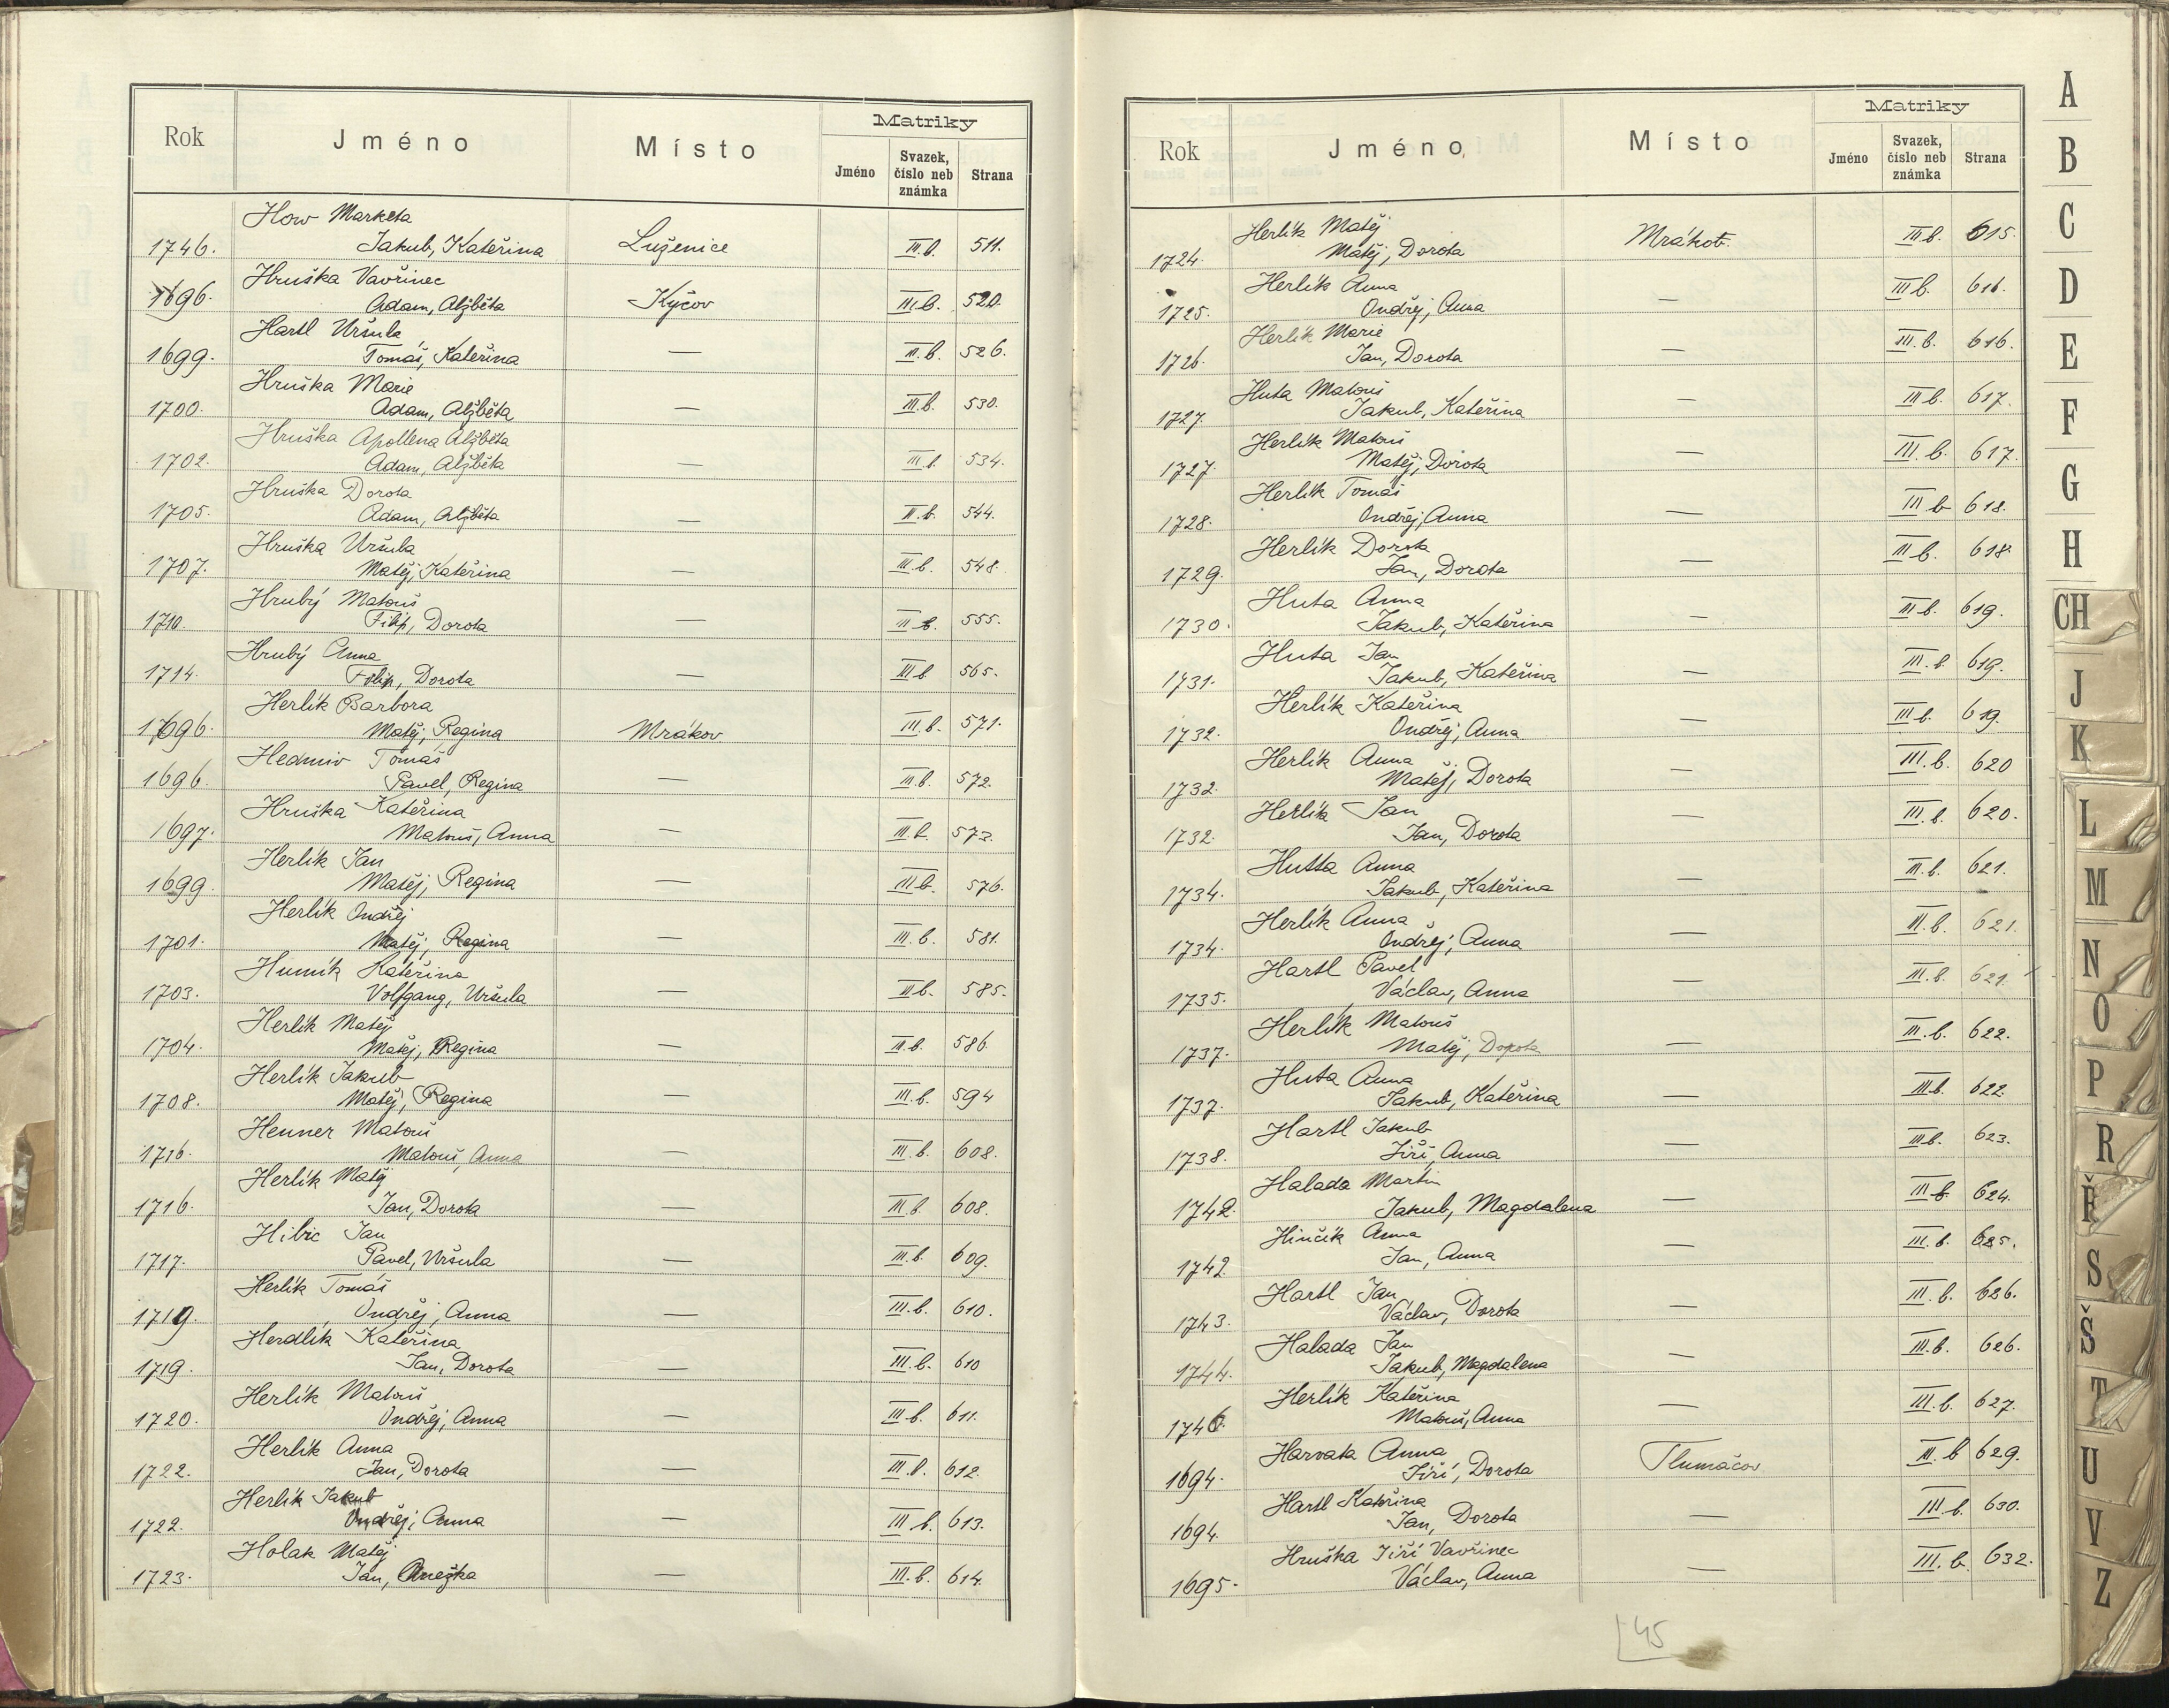 Rok
Jméno
Místo
Matriky
Jméno
Svazek,
číslo neb
známka
Strana
How Marketa
1746. Jakub, Kateřina Luženice III.b. 511.
Hruška Vavřinec
1696. Adam, Alžběta Kyčov III.b. 520.
Hartl Uršula
1699. Tomáš, Kateřina — III.b. 526.
Hruška Marie
1700. Adam, Alžběta — III.b. 530.
Hruška Apollena Alžběta
1702. Adam, Alžběta — III.b. 534.
Hruška Dorota
1705. Adam, Alžběta — III.b. 544.
Hruška Uršula
1707. Matěj, Kateřina — III.b. 548.
Hrubý Matouš
1710. Filip, Dorota — III.b. 555.
Hrubý Anna
1714. Filip, Dorota — III.b 565.
Herlík Barbora
1696. Matěj, Regina Mrákov III.b. 571.
Hedmiv Tomáš
1696. Pavel, Regina — III.b. 572.
Hruška Kateřina
1697. Matouš, Anna — III.b. 573.
Herlík Jan
1699. Matěj, Regina — III.b. 576.
Herlík Ondřej
1701. Matěj, Regina — III.b. 581.
Humík Kateřina
1703. Volfgang, Uršula — III.b. 585.
Herlík Matěj
1704. Matěj, Regina — III.b. 586.
Herlík Jakub
1708. Matěj, Regina — III.b. 594
Henner Matouš
1716. Matouš, Anna — III.b. 608.
Herlík Matěj
1716. Jan, Dorota — III.b. 608.
Hibic Jan
1717. Pavel, Uršula — III.b. 609.
Herlík Tomáš
1719. Ondřej, Anna — III.b. 610.
Herdlík Kateřina
1719. Jan, Dorota — III.b. 610
Herlík Matouš
1720. Ondřej, Anna — III.b. 611.
Herlík Anna
1722. Jan, Dorota — III.b. 612.
Herlík Jakub
1722. Ondřej, Anna — III.b. 613.
Holak Matěj
1723. Jan, Anežka — III.b. 614.
Rok
Jméno
Místo
Matriky
Jméno
Svazek,
číslo neb
známka
Strana
Herlík Matěj
1724. Matěj, Dorota Mrákot. III.b. 615.
Herlík Anna
1725. Ondřej, Anna — III b. 616.
Herlík Marie
1726. Jan, Dorota — III.b. 616.
Huta Matouš
1727. Jakub, Kateřina — III.b. 617.
Herlík Matouš
1727. Matěj, Dorota — III. b. 617.
Herlík Tomáš
1728. Ondřej, Anna — III b 618.
Herlík Dorota
1729. Jan, Dorota — III b. 618.
Huta Anna
1730. Jakub, Kateřina — III b. 619.
Huta Jan
1731. Jakub, Kateřina — III. b. 619.
Herlík Kateřina
1732. Ondřej, Anna — III b. 619.
Herlík Anna
1732. Matěj, Dorota — III. b. 620
Herlík Jan
1732. Jan, Dorota — III. b. 620.
Hutta Anna
1734. Jakub, Kateřina — III. b. 621.
Herlík Anna
1734. Ondřej, Anna — III. b. 621.
Hartl Pavel
1735. Václav, Anna — III. b. 621.
Herlík Matouš
1737. Matěj, Dorota — III. b. 622.
Huta Anna
1737. Jakub, Kateřina — III b. 622.
Hartl Jakub
1738. Jiří, Anna — III b. 623.
Halada Martin
1742. Jakub, Magdalena — III b 624.
Hinčík Anna
1742. Jan, Anna — III. b. 625.
Hartl Jan
1743. Václav, Dorota — III. b. 626.
Halada Jan
1744. Jakub, Magdalena — III.b. 626.
Herlík Kateřina
1746. Matouš, Anna — III. b. 627.
Harvata Anna
1694. Jiří, Dorota Tlumačov III. b 629.
Hartl Kateřina
1694. Jan, Dorota — III b. 630.
Hruška Jiří Vavřinec
1695. Václav, Anna — III. b. 632.
45
A
B
C
D
E
F
G
H
CH
J
K
L
M
N
O
P
R
Ř
S
Š
T
U
V
Z